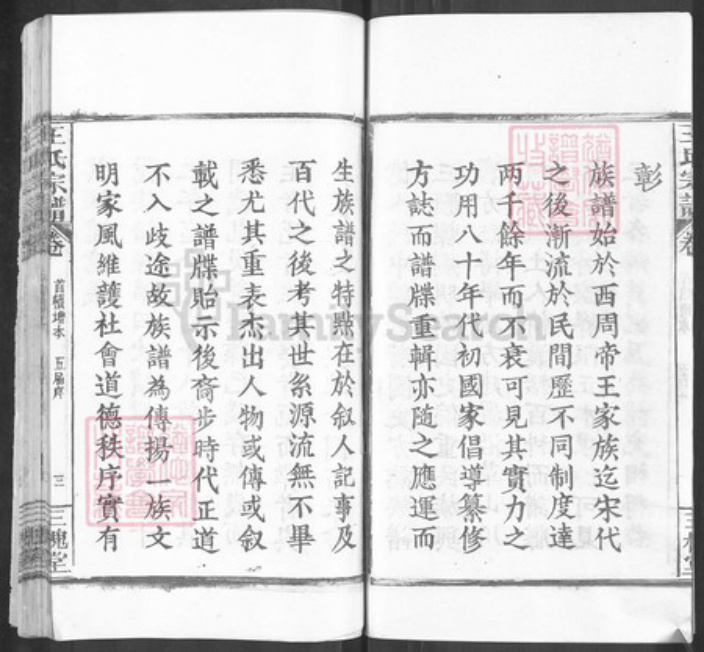 王氏宗譜
彰
族譜始於西周帝王家族迄宋代
之後漸流於民間歷不同制度達
兩千餘年而不衰可見其實力之
功用八十年代初國家倡導纂修
方誌而譜牒重輯亦隨之應運而
生族譜之特點在於叙人記事及
百代之後考其世系源流無不畢
悉尤其重表杰出人物或傳或叙
載之譜牒貽示後裔步時代正道
不入歧途故族譜為傳揚一族文
明家風維護社會道德秩序實有
王氏宗譜
卷
五屆序
三
三槐堂
FamilySearch